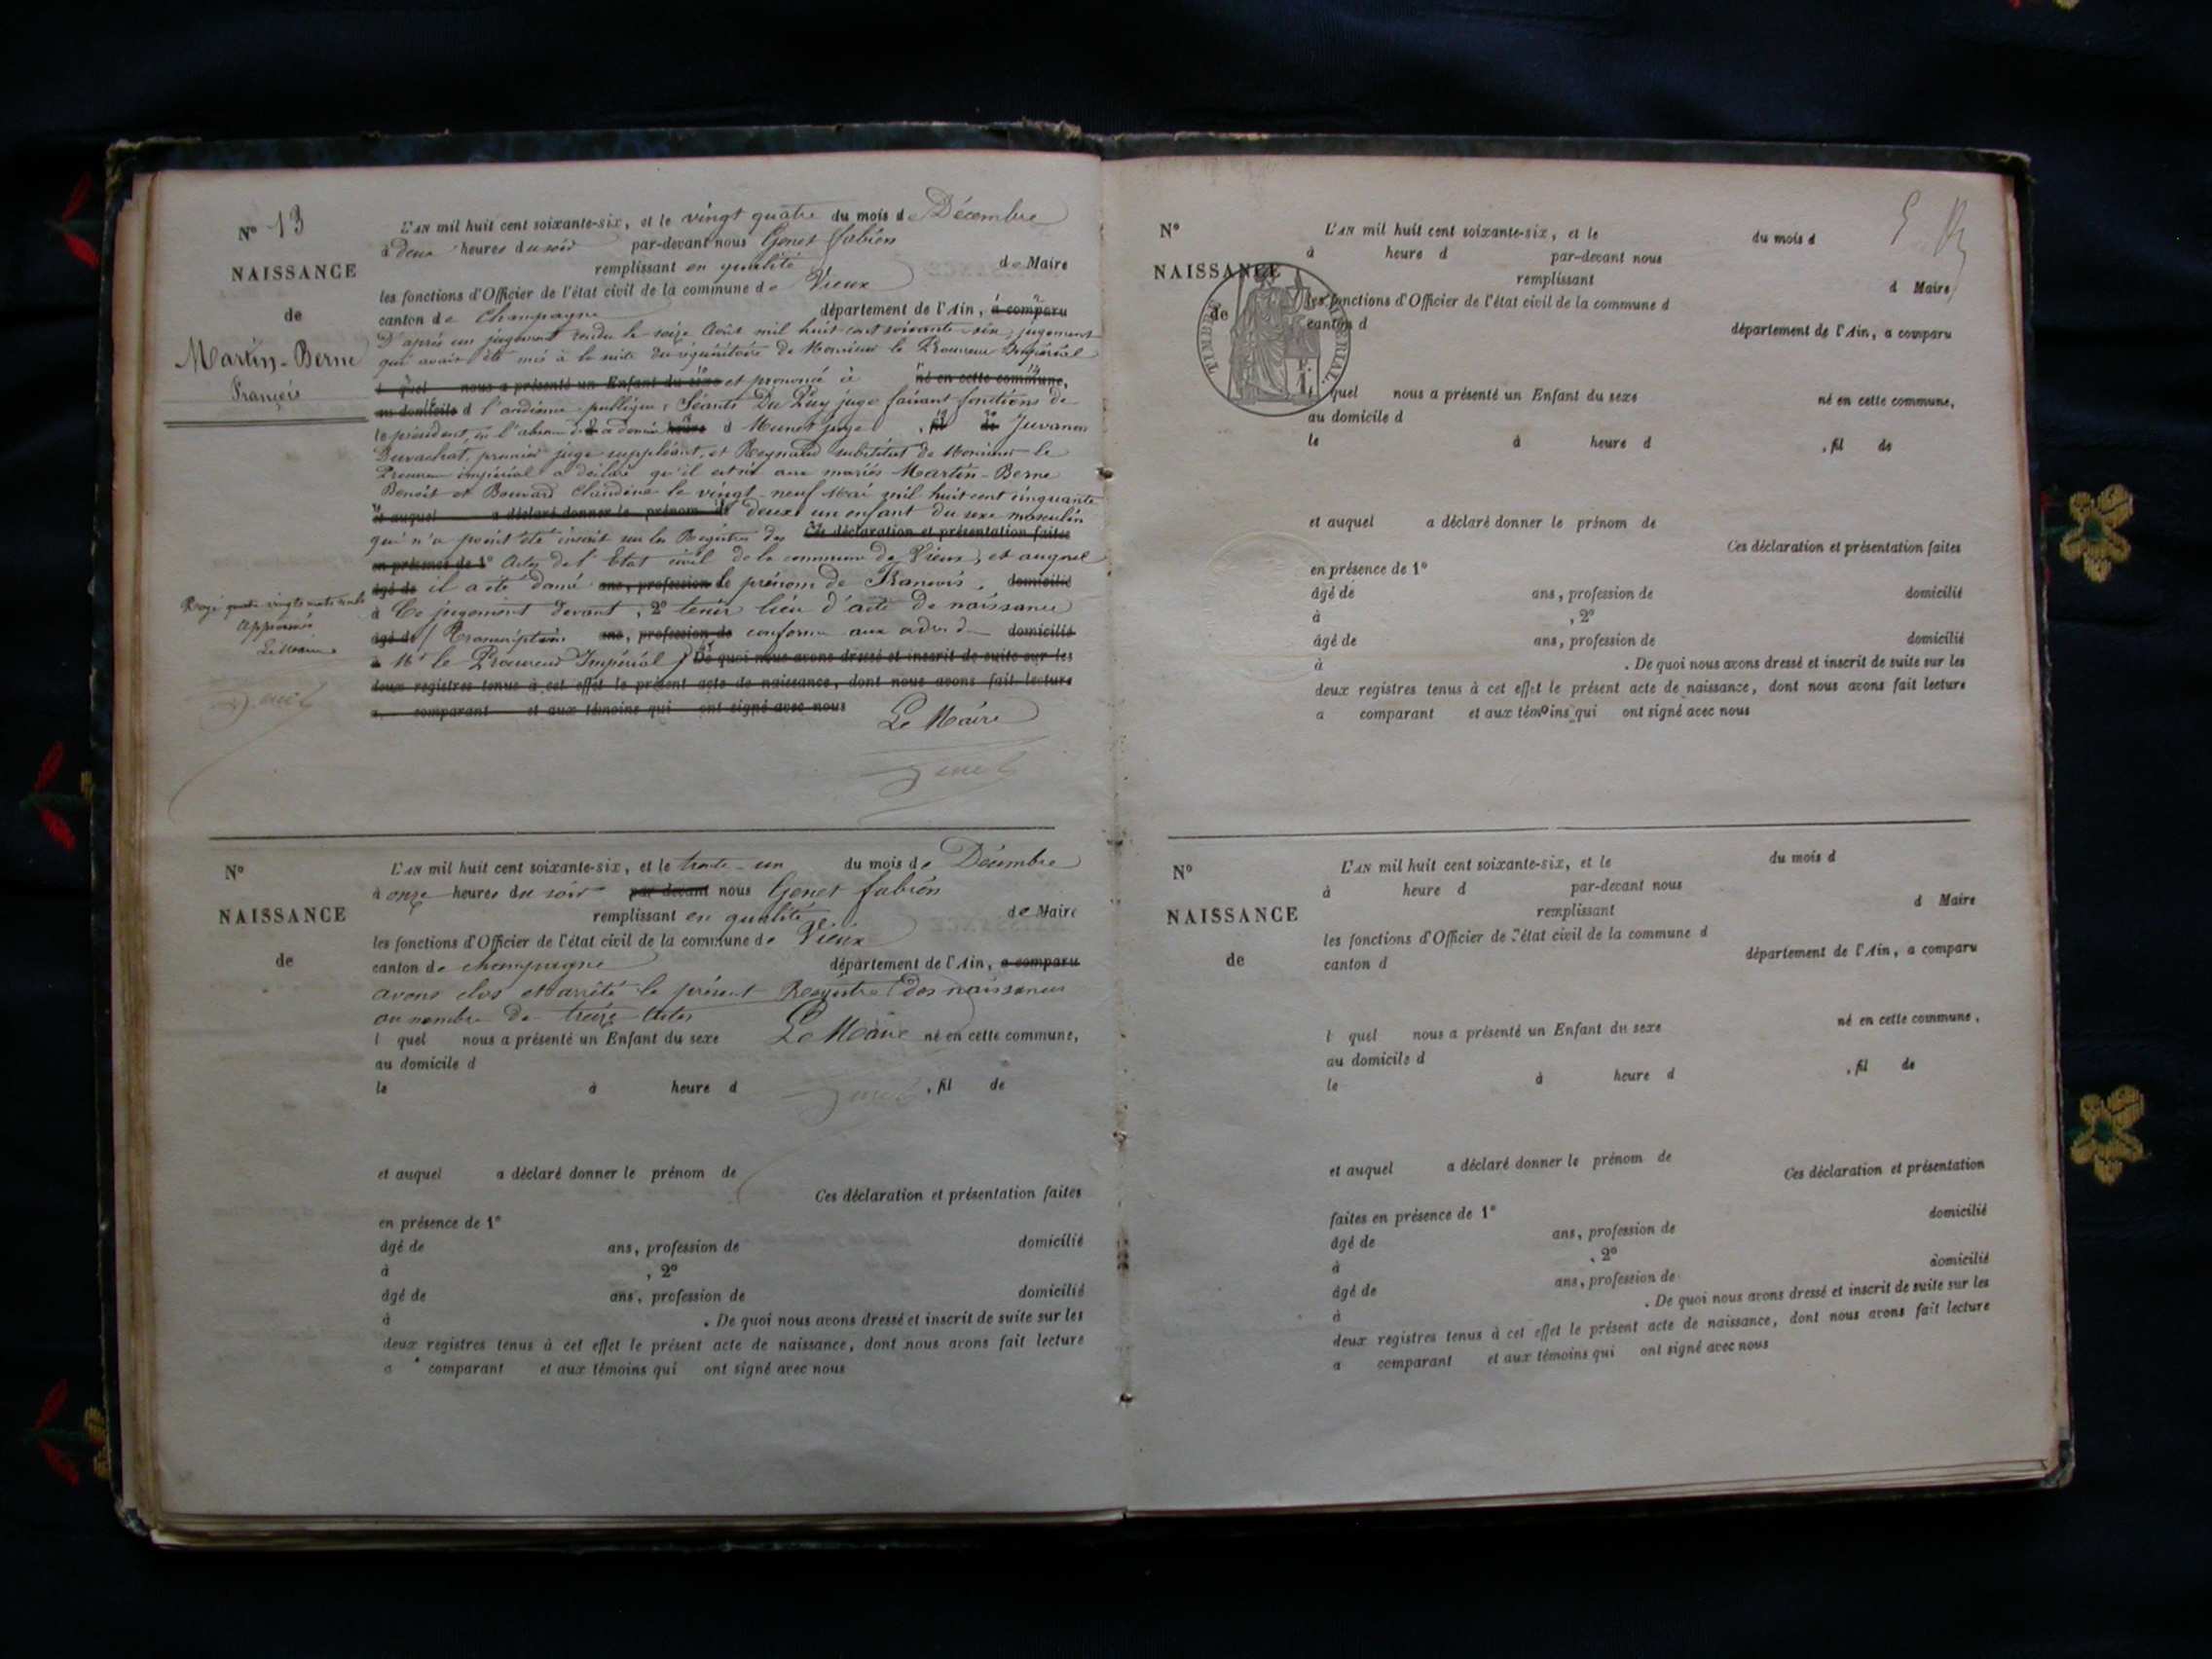 N° 13
NAISSANCE
de
Martin-Berne
François
L'AN mil huit cent soixante-six, et le vingt quatre du mois de Décembre
à deux heures du soir par-devant nous Genet fabien
remplissant en qualité de Maire
les fonctions d'Officier de l'état civil de la commune de Vieux
canton de Champagne département de l'Ain, a comparu
D'après un jugement rendu le seize Août mil huit cent soixante-six, jugement
qui avait été mis à la suite du réquisitoire de Monsieur le Procureur Impérial
l quel nous a présenté un Enfant du sexe et prononcé à né en cette commune,
au domicile d l'audience publique, Séants Du Puy juge faisant fonctions de
le président, en l'absence heure d Munet juge , fil de Juvanon
Duvachat, premier juge suppléant, et Reynaud substitut de Monsieur le
Procureur impérial a déclaré qu'il est né aux mariés Martin-Berne
Benoît et Bouvard Claudine le vingt-neuf Mai mil huit cent cinquante
et auquel a déclaré donner le prénom de deux un enfant du sexe masculin
qui n'a point été inscrit sur les Registres des Ces déclaration et présentation faites
en présence de 1° Actes de l'Etat civil de la commune de Vieux, et auquel
âgé de il a été donné ans, profession le prénom de François. domicilié
à Ce jugement devant, 2° tenir lieu d'acte de naissance
âgé de Transcription ans, profession de conforme aux ordres de domicilié
à Mr le Procureur Impérial De quoi nous avons dressé et inscrit de suite sur les
deux registres tenus à cet effet le présent acte de naissance, dont nous avons fait lecture
a comparant et aux témoins qui ont signé avec nous
Le Maire
Genet
Rayé quatre vingts mots nuls
Approuvé
Le Maire
Genet
N°
NAISSANCE
de
L'AN mil huit cent soixante-six, et le trente-un du mois de Décembre
à onze heures du soir par devant nous Genet fabien
remplissant en qualité de Maire
les fonctions d'Officier de l'état civil de la commune de Vieux
canton de champagne département de l'Ain, a comparu
avons clos et arrêté le présent Registre des naissances
au nombre de treize Actes
l quel nous a présenté un Enfant du sexe Le Maire né en cette commune,
au domicile d
le à heure d Genet , fil de
et auquel a déclaré donner le prénom de
Ces déclaration et présentation faites
en présence de 1°
âgé de ans, profession de domicilié
à , 2°
âgé de ans, profession de domicilié
à . De quoi nous avons dressé et inscrit de suite sur les
deux registres tenus à cet effet le présent acte de naissance, dont nous avons fait lecture
a comparant et aux témoins qui ont signé avec nous
N°
NAISSANCE
de
TIMBRE IMPERIAL
L'AN mil huit cent soixante-six, et le du mois d
à heure d par-devant nous
remplissant d Maire
les fonctions d'Officier de l'état civil de la commune d
canton d département de l'Ain, a comparu
l quel nous a présenté un Enfant du sexe né en cette commune,
au domicile d
le à heure d , fil de
et auquel a déclaré donner le prénom de
Ces déclaration et présentation faites
en présence de 1°
âgé de ans, profession de domicilié
à , 2°
âgé de ans, profession de domicilié
à . De quoi nous avons dressé et inscrit de suite sur les
deux registres tenus à cet effet le présent acte de naissance, dont nous avons fait lecture
a comparant et aux témoins qui ont signé avec nous
N°
NAISSANCE
de
L'AN mil huit cent soixante-six, et le du mois d
à heure d par-devant nous
remplissant d Maire
les fonctions d'Officier de l'état civil de la commune d
canton d département de l'Ain, a comparu
l quel nous a présenté un Enfant du sexe né en cette commune,
au domicile d
le à heure d , fil de
et auquel a déclaré donner le prénom de
Ces déclaration et présentation
faites en présence de 1°
âgé de ans, profession de domicilié
à , 2°
âgé de ans, profession de domicilié
à . De quoi nous avons dressé et inscrit de suite sur les
deux registres tenus à cet effet le présent acte de naissance, dont nous avons fait lecture
a comparant et aux témoins qui ont signé avec nous